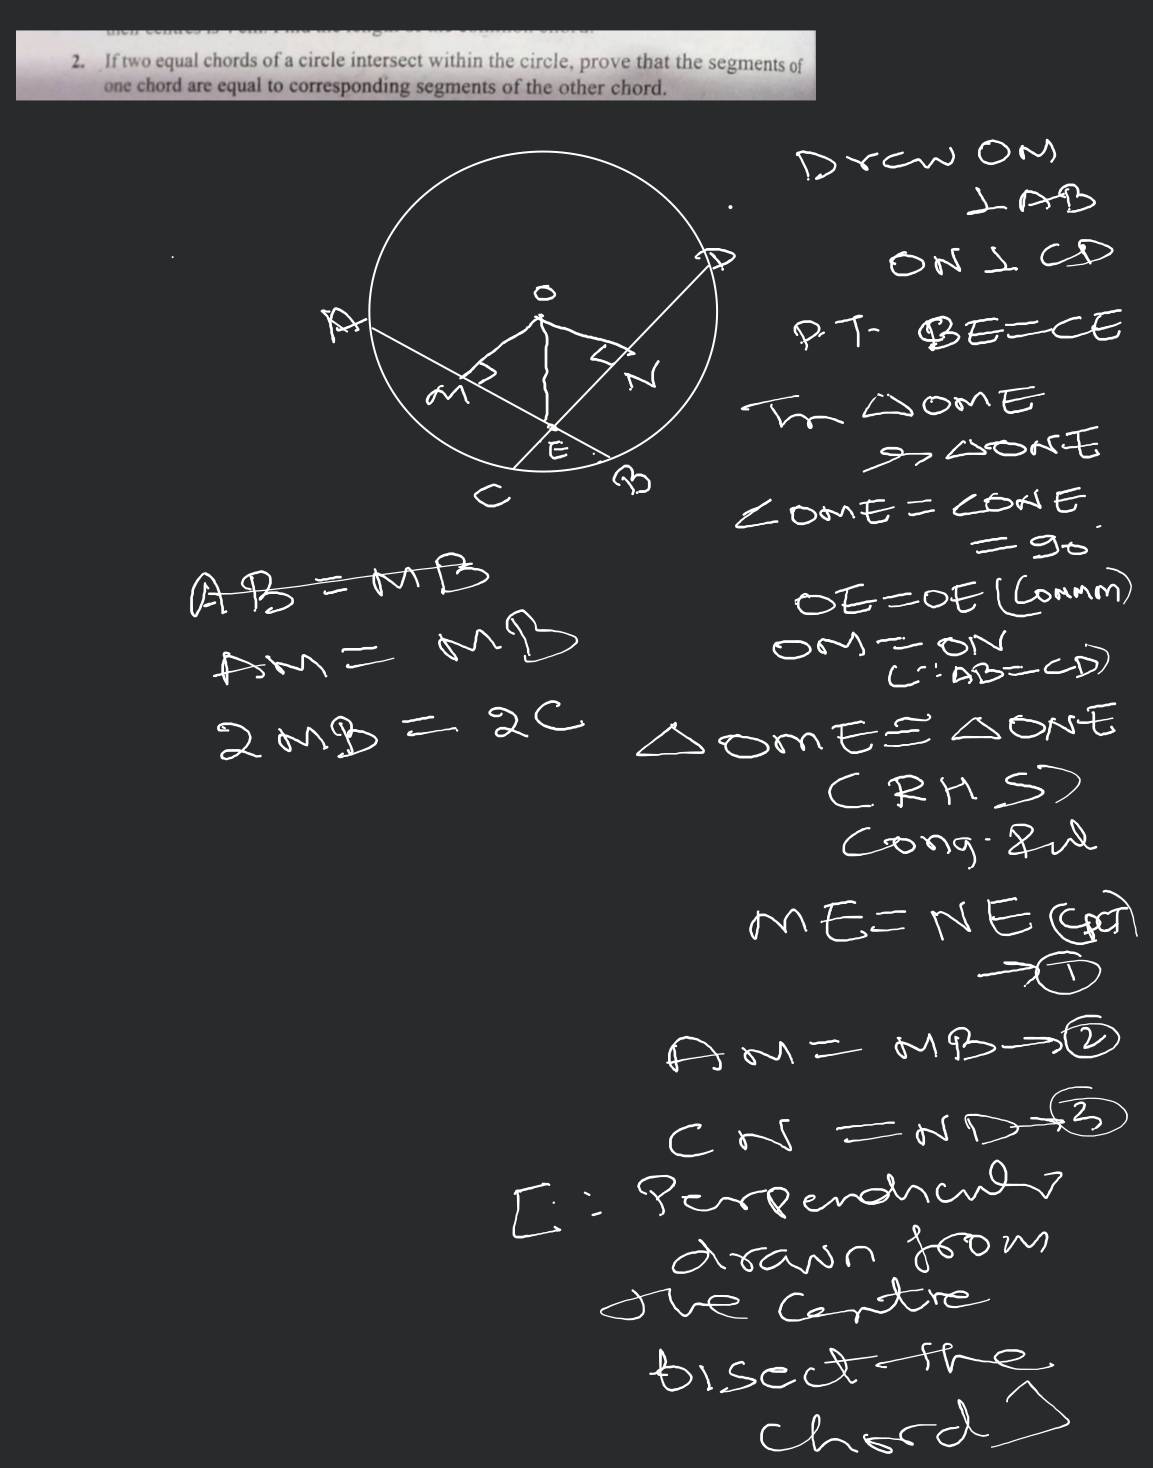 2. If two equal chords of a circle intersect within the circle, prove that the segments of
one chord are equal to corresponding segments of the other chord.
Draw OM
⊥ AB
ON ⊥ CD
P.T- BE=CE
In △OME
& △ONE
∠OME = ∠ONE
= 90°
OE=OE (Commm)
OM = ON
(∵ AB=CD)
△OME ≅ △ONE
(RHS)
Cong. Rul
ME = NE (CPCT)
→ ①
AM = MB → ②
CN = ND → ③
[∵ Perpendicular
drawn from
the centre
bisect the
chord]
O
D
A
M
N
E
C
B
AB = MB
AM = MB
2MB = 2C